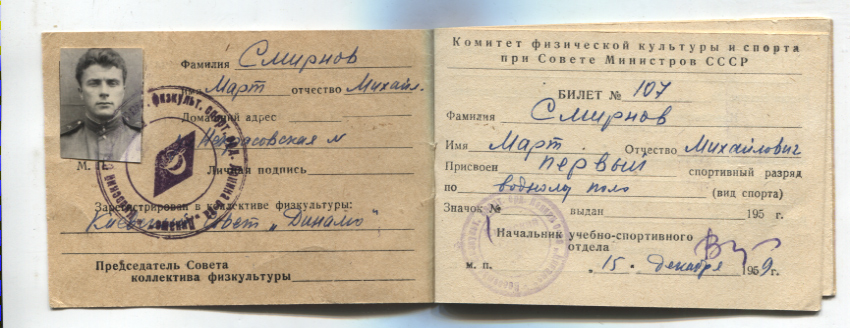 Фамилия Смирнов
Март отчество Михайл.
Домашний адрес
Некрасовская
М. П.
Личная подпись
Зарегистрирован в коллективе физкультуры:
Киевский Совет „Динамо"
Председатель Совета
коллектива физкультуры
Комитет физической культуры и спорта
при Совете Министров СССР
БИЛЕТ № 107
Фамилия Смирнов
Имя Март Отчество Михайлович
Присвоен первый спортивный разряд
по водному поло (вид спорта)
Значок № выдан 195 г.
Начальник учебно-спортивного
отдела
м. п. „15" декабря 1959г.